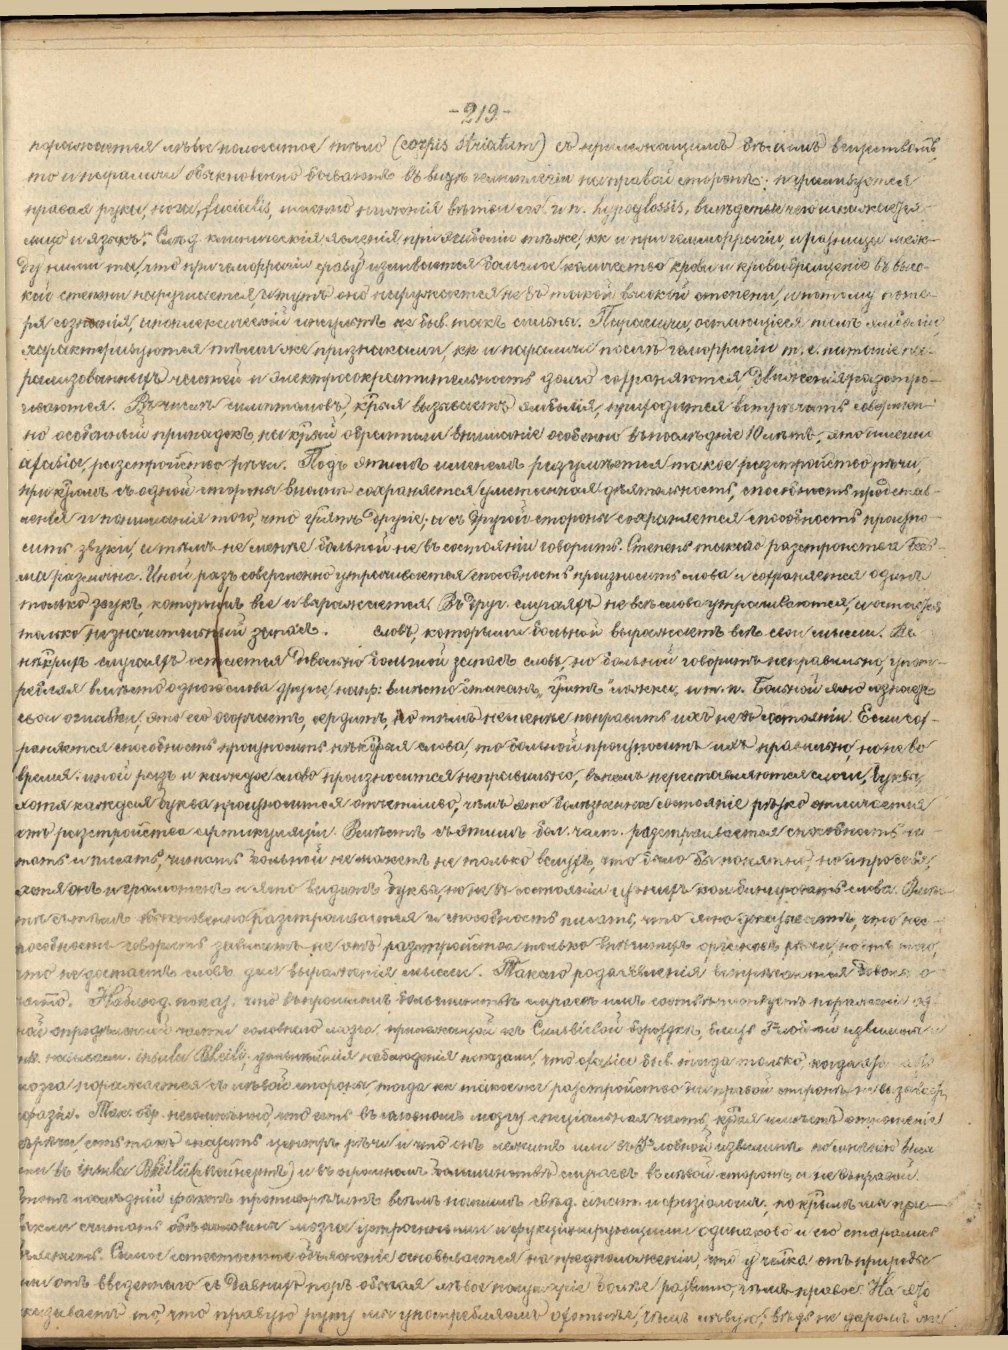 -219-
поражается лѣвое полосатое тѣло (corpis striatum) съ прилежащимъ бѣлымъ веществомъ,
то и параличи обыкновенно бываютъ въ видѣ гемиплегіи на правой сторонѣ: парализуется
правая рука, нога, facialis, именно нижнія вѣтви его и n. hypoglossis, вслѣдствіе чего искажается
лицо и языкъ. Слѣд. клиническія явленія при эмболіи тѣже, кк и при геммораргіи, и разница меж-
ду ними та, что при геморрагіи сразу изливается большое количество крови и кровообращеніе въ высо-
кой степени нарушается, а тутъ оно нарушается не въ такой высокой степени, и потому поте-
ря сознанія, апоплексическій инсультъ не быв. такъ сильны. Параличи, остающіеся послѣ эмболіи,
характеризуются тѣми же признаками, кк и параличи послѣ геморрагіи т. е. питаніе па-
рализованныхъ частей и электросократительность долго сохраняются, движенія разстро-
иваются. Въ числѣ симптомовъ, крыя вызываетъ эмболія, приходится встрѣчать совершен-
но особенный припадокъ, на крый обратили вниманіе особенно въ послѣдніе 10 лѣтъ, это именно
afasia, разстройство рѣчи. Подъ этимъ именемъ разумѣется такое разстройство рѣчи,
при кромъ съ одной стороны вполнѣ сохраняется умственная дѣятельность, способность представ-
ленія и пониманія того, что грятъ другіе, а съ другой стороны сохраняется способность произно-
сить звуки, а тѣмъ не менѣе больной не въ состояніи говорить. Степень такого разстройства весь-
ма различна. Иной разъ совершенно утрачивается способность произносить слова и сохраняется одинъ
только звукъ, которымъ все и выражается. Въ друг. случаяхъ не всѣ слова утрачиваются, а остается
только незначительный запасъ. словъ, которыми больной выражаетъ всѣ свои мысли. Въ
нѣкрыхъ случаяхъ остается довольно большой запасъ словъ, но больной говоритъ неправильно, упот-
ребляя вмѣсто одного слова другое, напр: вмѣсто "стаканъ", гритъ "ложка", и т. п. Больной ясно сознаетъ
свои ошибки, это его огорчаетъ, сердитъ, но тѣмъ не менѣе поправить ихъ не въ состояніи. Если сох-
раняется способность произносить нѣкрыя слова, то больной произноситъ ихъ правильно, но не во
время. иной разъ и каждое слово произносится неправильно, въ немъ переставляются слоги, буквы,
хотя каждая буква произносится отчетливо, чѣмъ это болѣзненное состояніе рѣзко отличается
отъ разстройства артикуляціи. Вмѣстѣ съ этимъ бол. част. разстраивается способность чи-
тать и писать, читать больной не можетъ не только вслухъ, что было бы понятно, но и про себя,
хотя онъ и грамотенъ и ясно видитъ буквы, но не въ состояніи изъ нихъ комбинировать слова. Вмѣс-
тѣ съ тѣмъ обыкновенно разстраивается и способность писать, что ясно указываетъ, что нес-
пособность говорить зависитъ не отъ разстройства только внѣшнихъ органовъ рѣчи, но отъ того,
что не достаетъ словъ для выраженія мысли. Такого рода явленія встрѣчаются довольно
часто. Наблюд. показ. что въ громадн. большинствѣ случаевъ имъ соотвѣтствуетъ пораженіе од-
ной опредѣленной части головного мозга, прилежащей къ Сильвіевой бороздкѣ,
назыв. insula Rheilii; дальнѣйшія наблюденія показали, что afasia быв. тогда только, когда эта часть
мозга поражается съ лѣвой стороны, тогда кк такое же разстройство на правой сторонѣ не вызываетъ
афазіи. Так. обр. несомнѣнно, что есть въ головномъ мозгу спеціальная часть, края имѣетъ отношеніе
къ рѣчи, есть такъ сказать центръ рѣчи и что онъ лежитъ или въ 3й лобной извилинѣ
или въ insula Rheilii и въ огромномъ большинствѣ случаевъ въ лѣвой сторонѣ, а не въ правой.
Этотъ послѣдній фактъ противорѣчитъ всѣмъ нашимъ свѣд. анат. и физіологич. по крымъ мы при-
выкли считать обѣ половины мозга устроенными и функціонирующими одинаково
Самое естественное объясненіе основывается на предположеніи, что у челка отъ природы
или отъ введеннаго съ давнихъ поръ обычая лѣвое полушаріе болѣе развито, чѣмъ правое. На это
указываетъ то, что правую руку мы употребляемъ охотнѣе, чѣмъ лѣвую; вѣдь не даромъ